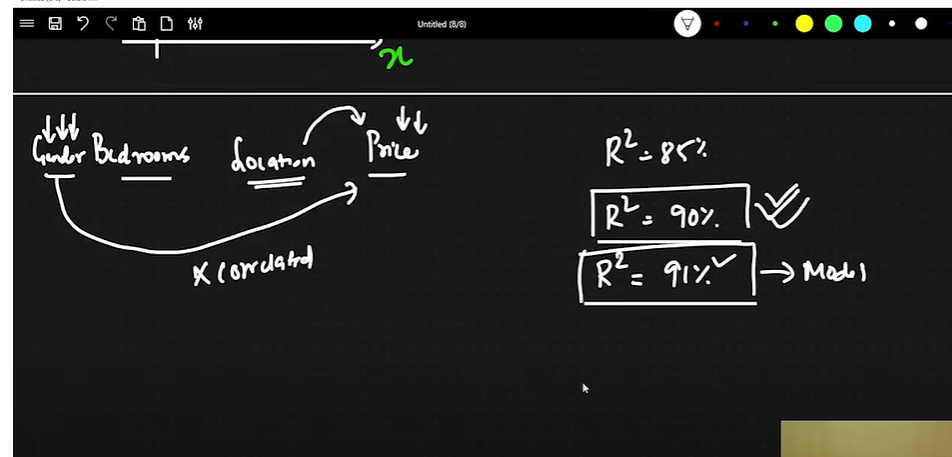 Untitled (8/8)
x
Gender Bedrooms Location Price
X Correlated
R² = 85%
R² = 90%
R² = 91% → Model